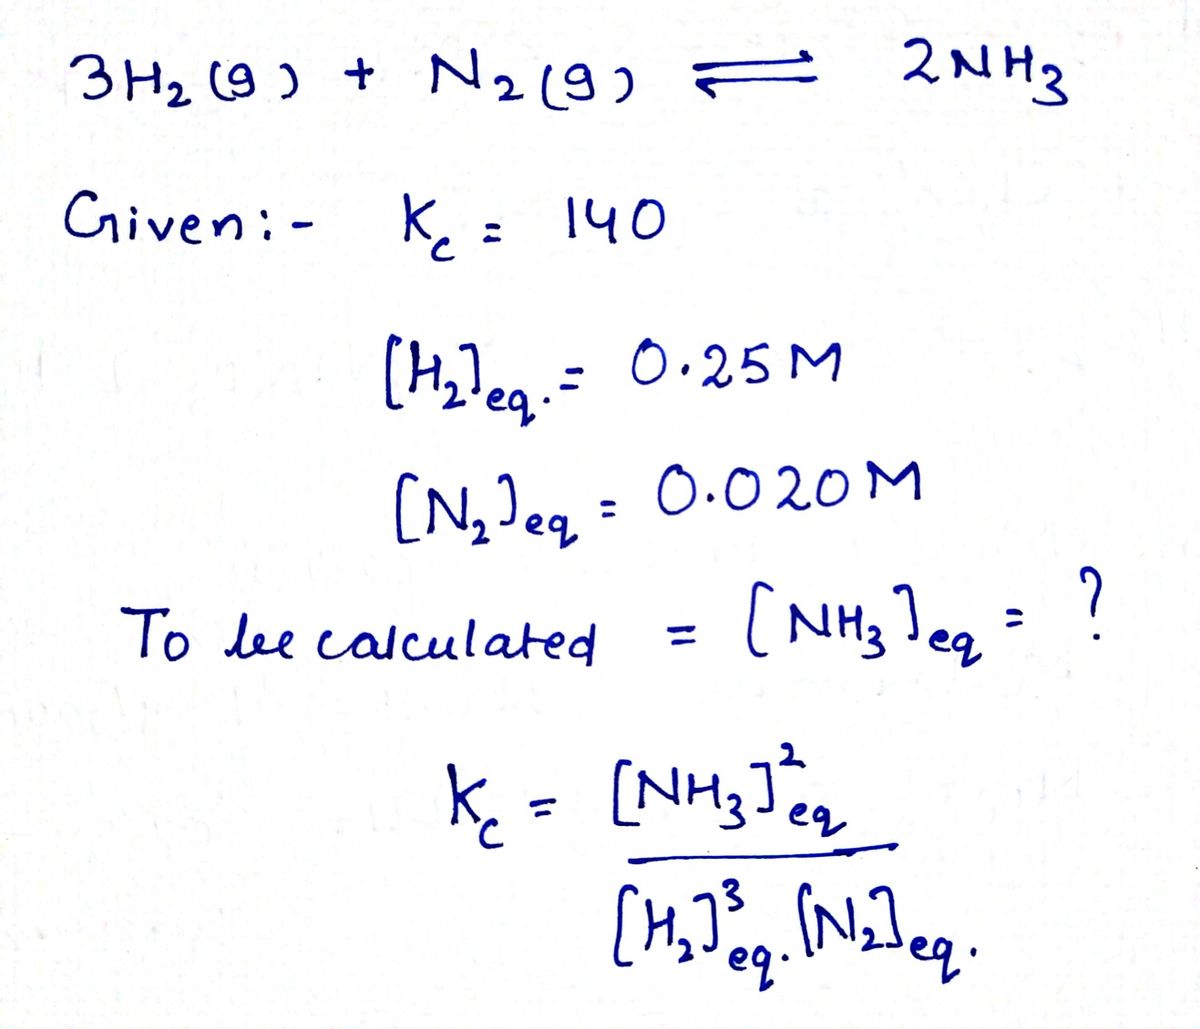 3H₂(g) + N₂(g) ⇌ 2NH₃
Given:- K_c = 140
[H₂]eq. = 0.25M
[N₂]eq = 0.020M
To be calculated = [NH₃]eq = ?
K_c = [NH₃]²eq
[H₂]³eq. [N₂]eq.